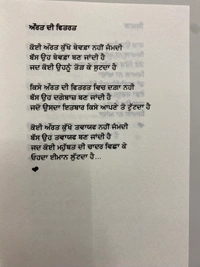 ਔਰਤ ਦੀ ਫਿਤਰਤ
ਕੋਈ ਔਰਤ ਕੁੱਖੋਂ ਬੇਵਫ਼ਾ ਨਹੀਂ ਜੰਮਦੀ
ਬੱਸ ਉਹ ਬੇਵਫ਼ਾ ਬਣ ਜਾਂਦੀ ਹੈ
ਜਦ ਕੋਈ ਉਹਨੂੰ ਤੋੜ ਕੇ ਸੁੱਟਦਾ ਹੈ
ਕਿਸੇ ਔਰਤ ਦੀ ਫਿਤਰਤ ਵਿਚ ਦਗਾ ਨਹੀਂ
ਬੱਸ ਉਹ ਦਗੇਬਾਜ਼ ਬਣ ਜਾਂਦੀ ਹੈ
ਜਦੋਂ ਉਸਦਾ ਇਤਬਾਰ ਕਿਸੇ ਆਪਣੇ ਤੋਂ ਟੁੱਟਦਾ ਹੈ
ਕੋਈ ਔਰਤ ਕੁੱਖੋਂ ਤਵਾਯਫ ਨਹੀਂ ਜੰਮਦੀ
ਬੱਸ ਉਹ ਤਵਾਯਫ ਬਣ ਜਾਂਦੀ ਹੈ
ਜਦ ਕੋਈ ਮੁਹੱਬਤ ਦੀ ਚਾਦਰ ਵਿਛਾ ਕੇ
ਓਹਦਾ ਈਮਾਨ ਲੁੱਟਦਾ ਹੈ...